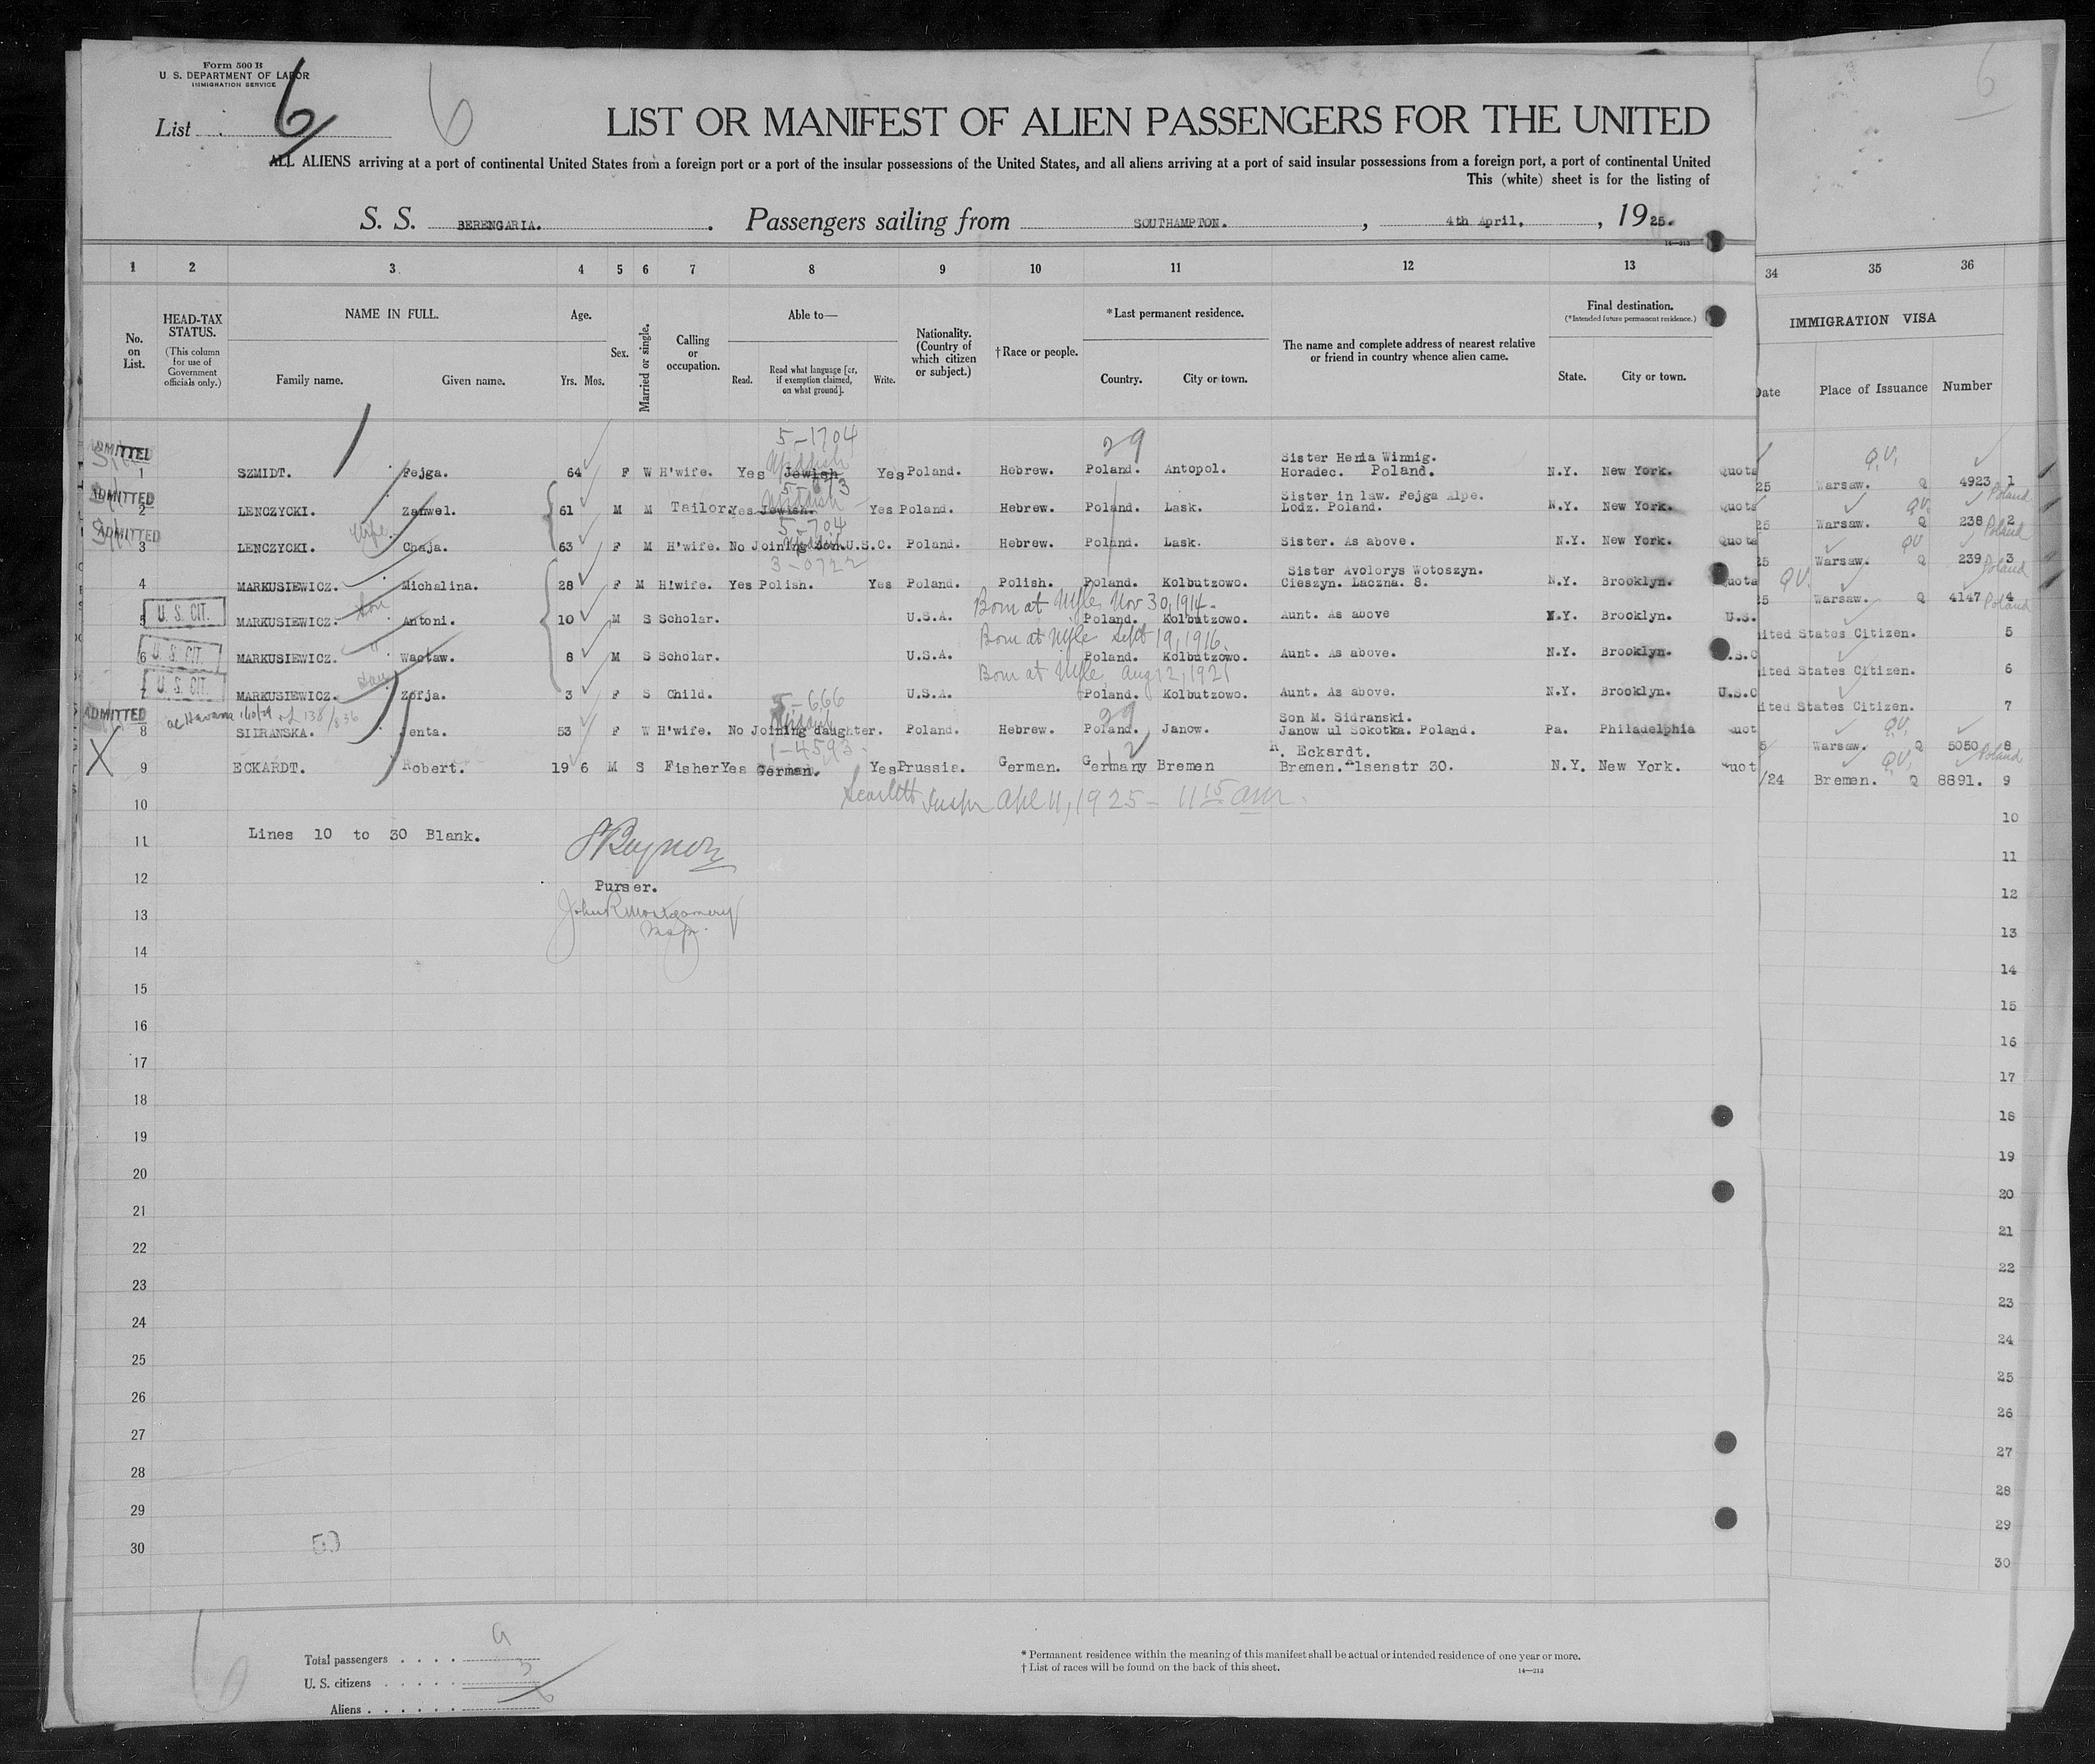 Form 500 B
U. S. DEPARTMENT OF LABOR
IMMIGRATION SERVICE
List 6 6
LIST OR MANIFEST OF ALIEN PASSENGERS FOR THE UNITED
ALL ALIENS arriving at a port of continental United States from a foreign port or a port of the insular possessions of the United States, and all aliens arriving at a port of said insular possessions from a foreign port, a port of continental United
This (white) sheet is for the listing of
S. S. BERENGARIA. Passengers sailing from SOUTHAMPTON. , 4th April, , 1925.
16—213
1 2 3 4 5 6 7 8 9 10 11 12 13 34 35 36
No. on List.
HEAD-TAX STATUS. (This column for use of Government officials only.)
NAME IN FULL. Family name. Given name.
Age. Yrs. Mos.
Sex.
Married or single.
Calling or occupation.
Able to— Read. Read what language [or, if exemption claimed, on what ground]. Write.
Nationality. (Country of which citizen or subject.)
†Race or people.
*Last permanent residence. Country. City or town.
The name and complete address of nearest relative or friend in country whence alien came.
Final destination. (*Intended future permanent residence.) State. City or town.
IMMIGRATION VISA
Date Place of Issuance Number
5-1704 29
ADMITTED Yiddish Sister Henia Winnig.
1 SZMIDT. Fejga. 64 F W H'wife. Yes Jewish Yes Poland. Hebrew. Poland. Antopol. Horadec. Poland. N.Y. New York. Quota 25 Warsaw. Q 4923 1 QV. Poland
ADMITTED Yiddish Sister in law. Fejga Alpe.
2 LENCZYCKI. Zanwel. 61 M M Tailor. Yes Jewish. Yes Poland. Hebrew. Poland. Lask. Lodz. Poland. N.Y. New York. Quota 25 Warsaw. Q 238 2 QV. Poland
ADMITTED wife 5-704
3 LENCZYCKI. Chaja. 63 F M H'wife. No Joining Son.U.S.C. Poland. Hebrew. Poland. Lask. Sister. As above. N.Y. New York. Quota 25 Warsaw. Q 239 3 QV Poland
3-0722 Sister Avolorys Wotoszyn.
4 MARKUSIEWICZ. Michalina. 28 F M H'wife. Yes Polish. Yes Poland. Polish. Poland. Kolbutzowo. Cieszyn. Laczna. 8. N.Y. Brooklyn. Quota 25 Warsaw. Q 4147 4 QV. Poland
U. S. CIT. son Born at Nov 30, 1914.
5 MARKUSIEWICZ. Antoni. 10 M S Scholar. U.S.A. Poland. Kolbutzowo. Aunt. As above N.Y. Brooklyn. U.S. ited States Citizen. 5
U. S. CIT. " Born at Sept 19, 1916.
6 MARKUSIEWICZ. Wactaw. 8 M S Scholar. U.S.A. Poland. Kolbutzowo. Aunt. As above. N.Y. Brooklyn. U.S.C ited States Citizen. 6
U. S. CIT. Born at Aug 12, 1921
7 MARKUSIEWICZ. Zofja. 3 F S Child. U.S.A. Poland. Kolbutzowo. Aunt. As above. N.Y. Brooklyn. U.S.C ited States Citizen. 7
ADMITTED 5-666 29 Son M. Sidranski.
8 SIDRANSKA. Jenta. 53 F W H'wife. No Joining daughter. Poland. Hebrew. Poland. Janow. Janow ul Sokotka. Poland. Pa. Philadelphia Quot 5 Warsaw. Q 5050 8 QV. Poland
X 1-4593 12 R. Eckardt.
9 ECKARDT. Robert. 19 6 M S Fisher Yes German. Yes Prussia. German. Germany Bremen Bremen. Alsenstr 30. N.Y. New York. Quot /24 Bremen. Q 8891. 9 QV.
Scarlett Inspr Apl 11, 1925 - 11 15 am.
10 10
11 Lines 10 to 30 Blank. 11
12 Purser. 12
13 John R Montgomery 13
14 14
15 15
16 16
17 17
18 18
19 19
20 20
21 21
22 22
23 23
24 24
25 25
26 26
27 27
28 28
29 29
30 30
6
Total passengers . . . . 9
U. S. citizens . . . . . 3
Aliens . . . . . . 6
* Permanent residence within the meaning of this manifest shall be actual or intended residence of one year or more.
† List of races will be found on the back of this sheet.
14—213